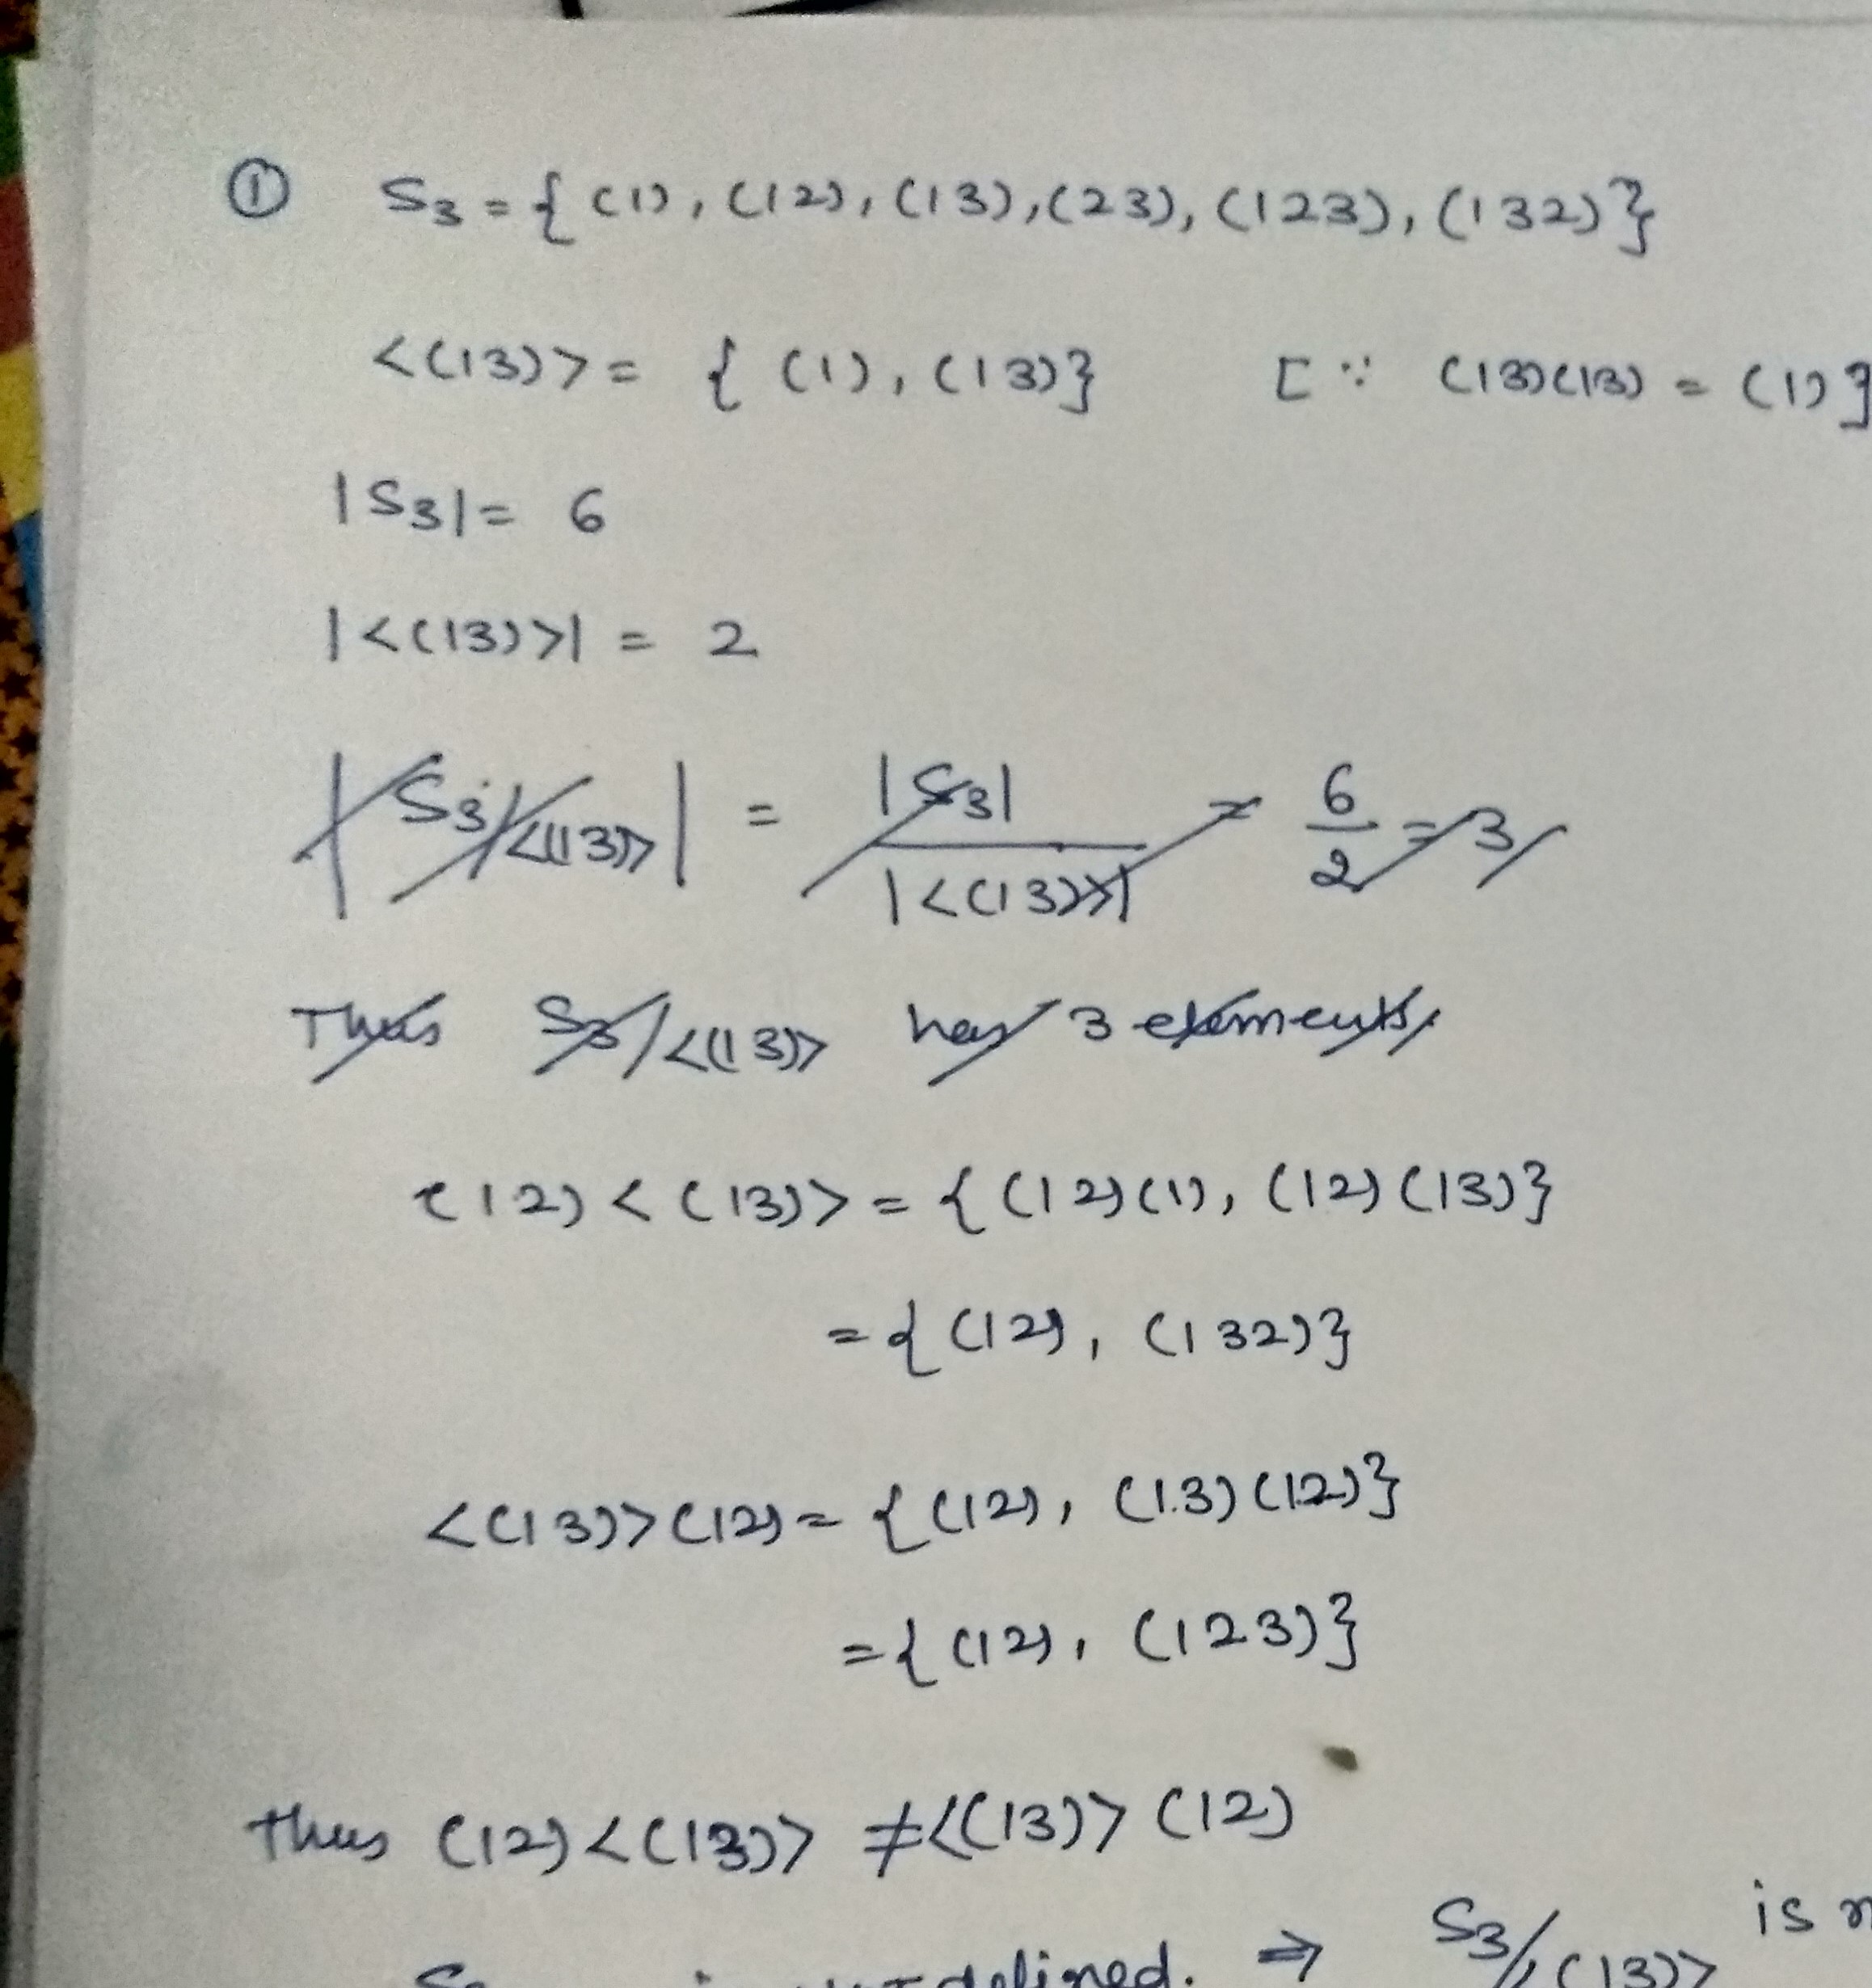 ① S₃ = { (1), (12), (13), (23), (123), (132) }
<(13)> = { (1), (13) } [ ∵ (13)(13) = (1) }
|S₃| = 6
|<(13)>| = 2
|S₃/<(13)>| = |S₃| / |<(13)>| = 6/2 = 3
Thus S₃/<(13)> has 3 elements
(12) <(13)> = { (12)(1), (12)(13) }
= { (12), (132) }
<(13)> (12) = { (12), (13)(12) }
= { (12), (123) }
Thus (12) <(13)> ≠ <(13)> (12)
defined. ⇒ S₃/<(13)> is